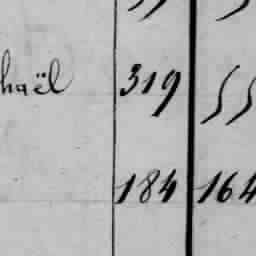 haël 319 55
184 164